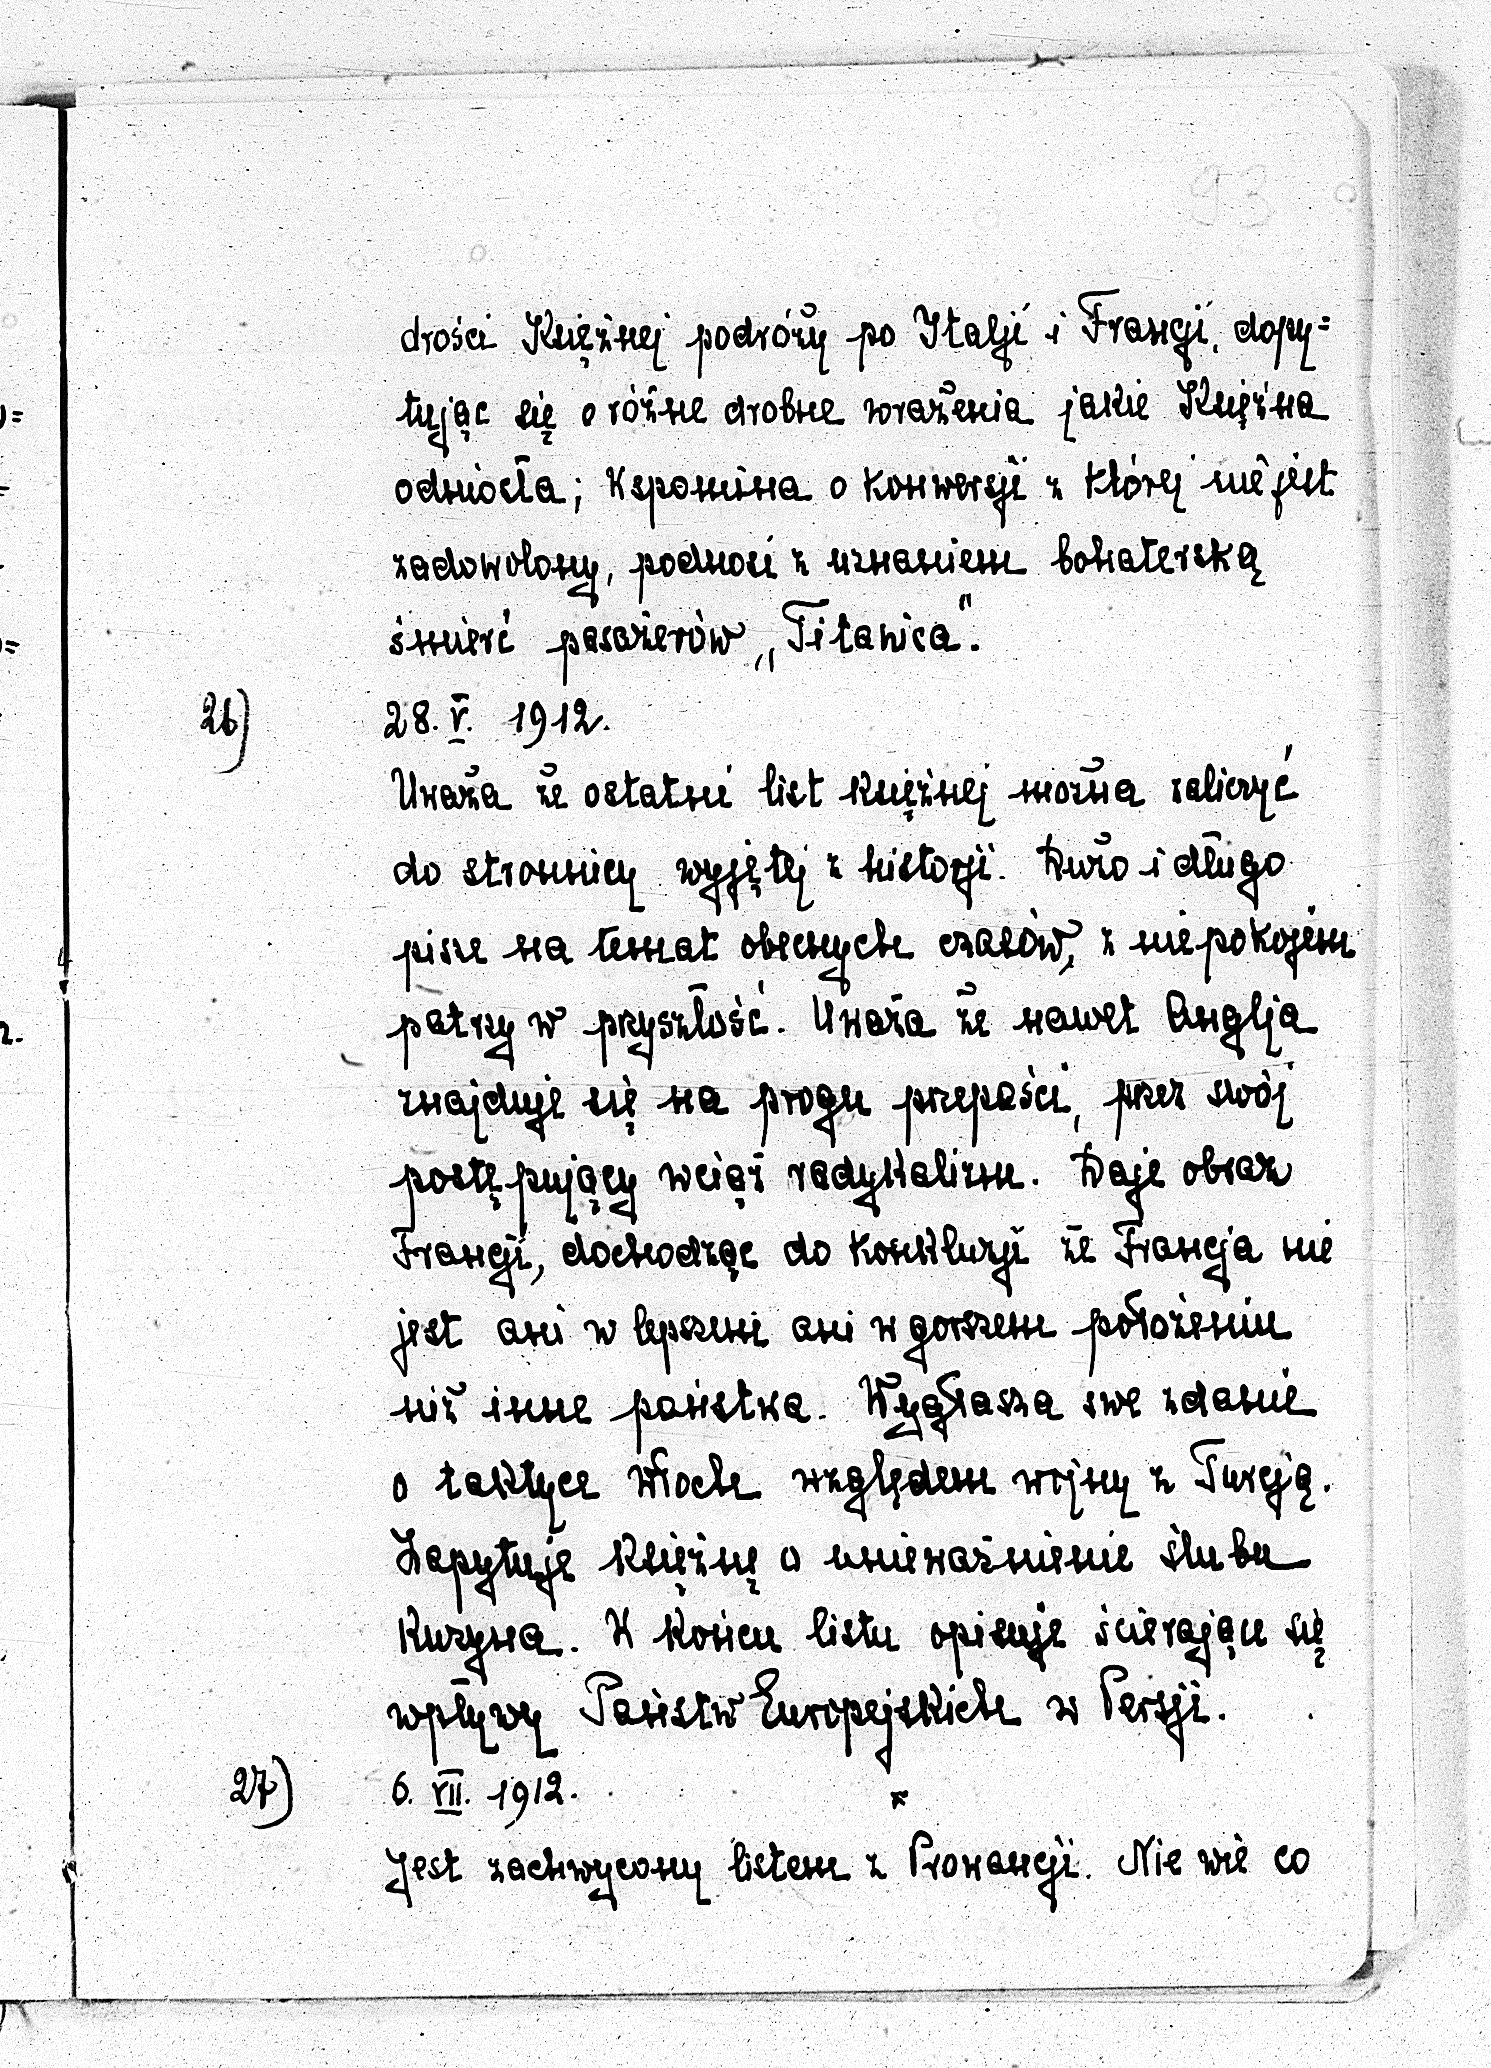 93
drości Księżnej podróży po Italji i Francji, dopy=
tując się o różne drobne wrażenia jakie Księżna
odniosła; Wspomina o konwersji z której nie jest
zadowolony, podnosi z uznaniem bohaterską
śmierć pasażerów „Titanica".
26) 28. V. 1912.
Uważa że ostatni list księżnej można zaliczyć
do stronnicy wyjętej z historji. Dużo i długo
pisze na temat obecnych czasów, z niepokojem
patrzy w przyszłość. Uważa że nawet Anglja
znajduje się na progu przepaści, przez swój
postępujący wciąż radykalizm. Daje obraz
Francji, dochodząc do konkluzji że Francja nie
jest ani w lepszem ani w gorszem położeniu
niż inne państwa. Wygłasza swe zdanie
o taktyce Włoch względem wojny z Turcją.
Zapytuje księżnę o unieważnienie ślubu
Kuzyna. W końcu listu opisuje ścierające się
wpływy Państw Europejskich w Persji.
27) 6. VII. 1912.
Jest zachwycony listem z Prowancji. Nie wie co